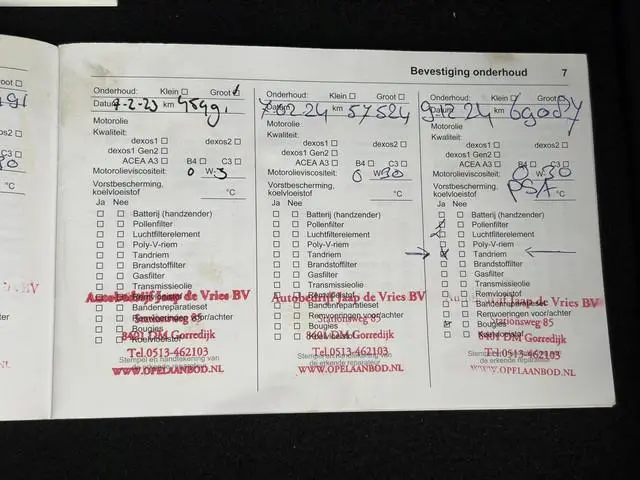 Bevestiging onderhoud 7
Onderhoud: Klein ☐ Groot ☐
Datum 7-2-23 km
Motorolie
Kwaliteit:
dexos1 ☐ dexos2 ☐
dexos1 Gen2 ☐
ACEA A3 ☐ B4 ☐ C3 ☐
Motorolieviscositeit: 0 W-
Vorstbescherming,
koelvloeistof °C
Ja Nee
☐ ☐ Batterij (handzender)
☐ ☐ Pollenfilter
☐ ☐ Luchtfilterelement
☐ ☐ Poly-V-riem
☐ ☐ Tandriem
☐ ☐ Brandstoffilter
☐ ☐ Gasfilter
☐ ☐ Transmissieolie
☐ ☐ Remvloeistof
☐ ☐ Bandenreparatieset
☐ ☐ Remvoeringen voor/achter
☐ ☐ Bougies
☐ ☐ Koelvloeistof
Autobedrijf Jaap de Vries BV
Stationsweg 85
8401 DM Gorredijk
Tel.0513-462103
Stempel en handtekening van
de erkende reparateur
WWW.OPELAANBOD.NL
Onderhoud: Klein ☐ Groot ☐
Datum 7-02-24 km 57524
Motorolie
Kwaliteit:
dexos1 ☐ dexos2 ☐
dexos1 Gen2 ☐
ACEA A3 ☐ B4 ☐ C3 ☐
Motorolieviscositeit: 0 W-30
Vorstbescherming,
koelvloeistof °C
Ja Nee
☐ ☐ Batterij (handzender)
☐ ☐ Pollenfilter
☐ ☐ Luchtfilterelement
☐ ☐ Poly-V-riem
☐ ☐ Tandriem
☐ ☐ Brandstoffilter
☐ ☐ Gasfilter
☐ ☐ Transmissieolie
☐ ☐ Remvloeistof
☐ ☐ Bandenreparatieset
☐ ☐ Remvoeringen voor/achter
☐ ☐ Bougies
☐ ☐ Koelvloeistof
Autobedrijf Jaap de Vries BV
Stationsweg 85
8401 DM Gorredijk
Tel.0513-462103
Stempel en handtekening van
de erkende reparateur
WWW.OPELAANBOD.NL
Onderhoud: Klein ☐ Groot ☐
Datum 9-12-24 km
Motorolie
Kwaliteit:
dexos1 ☐ dexos2 ☐
dexos1 Gen2 ☐
ACEA A3 ☐ B4 ☐ C3 ☐
Motorolieviscositeit: 0 W-30
Vorstbescherming,
koelvloeistof PSA °C
Ja Nee
☐ ☐ Batterij (handzender)
☐ ☐ Pollenfilter
☐ ☐ Luchtfilterelement
☐ ☐ Poly-V-riem
→ ☒ ☐ Tandriem ←
☐ ☐ Brandstoffilter
☐ ☐ Gasfilter
☐ ☐ Transmissieolie
☐ ☐ Remvloeistof
☐ ☐ Bandenreparatieset
☐ ☐ Remvoeringen voor/achter
☒ ☐ Bougies
☐ ☐ Koelvloeistof
Jaap de Vries BV
Stationsweg 85
8401 DM Gorredijk
Tel.0513-462103
Stempel en handtekening van
de erkende reparateur
WWW.OPELAANBOD.NL